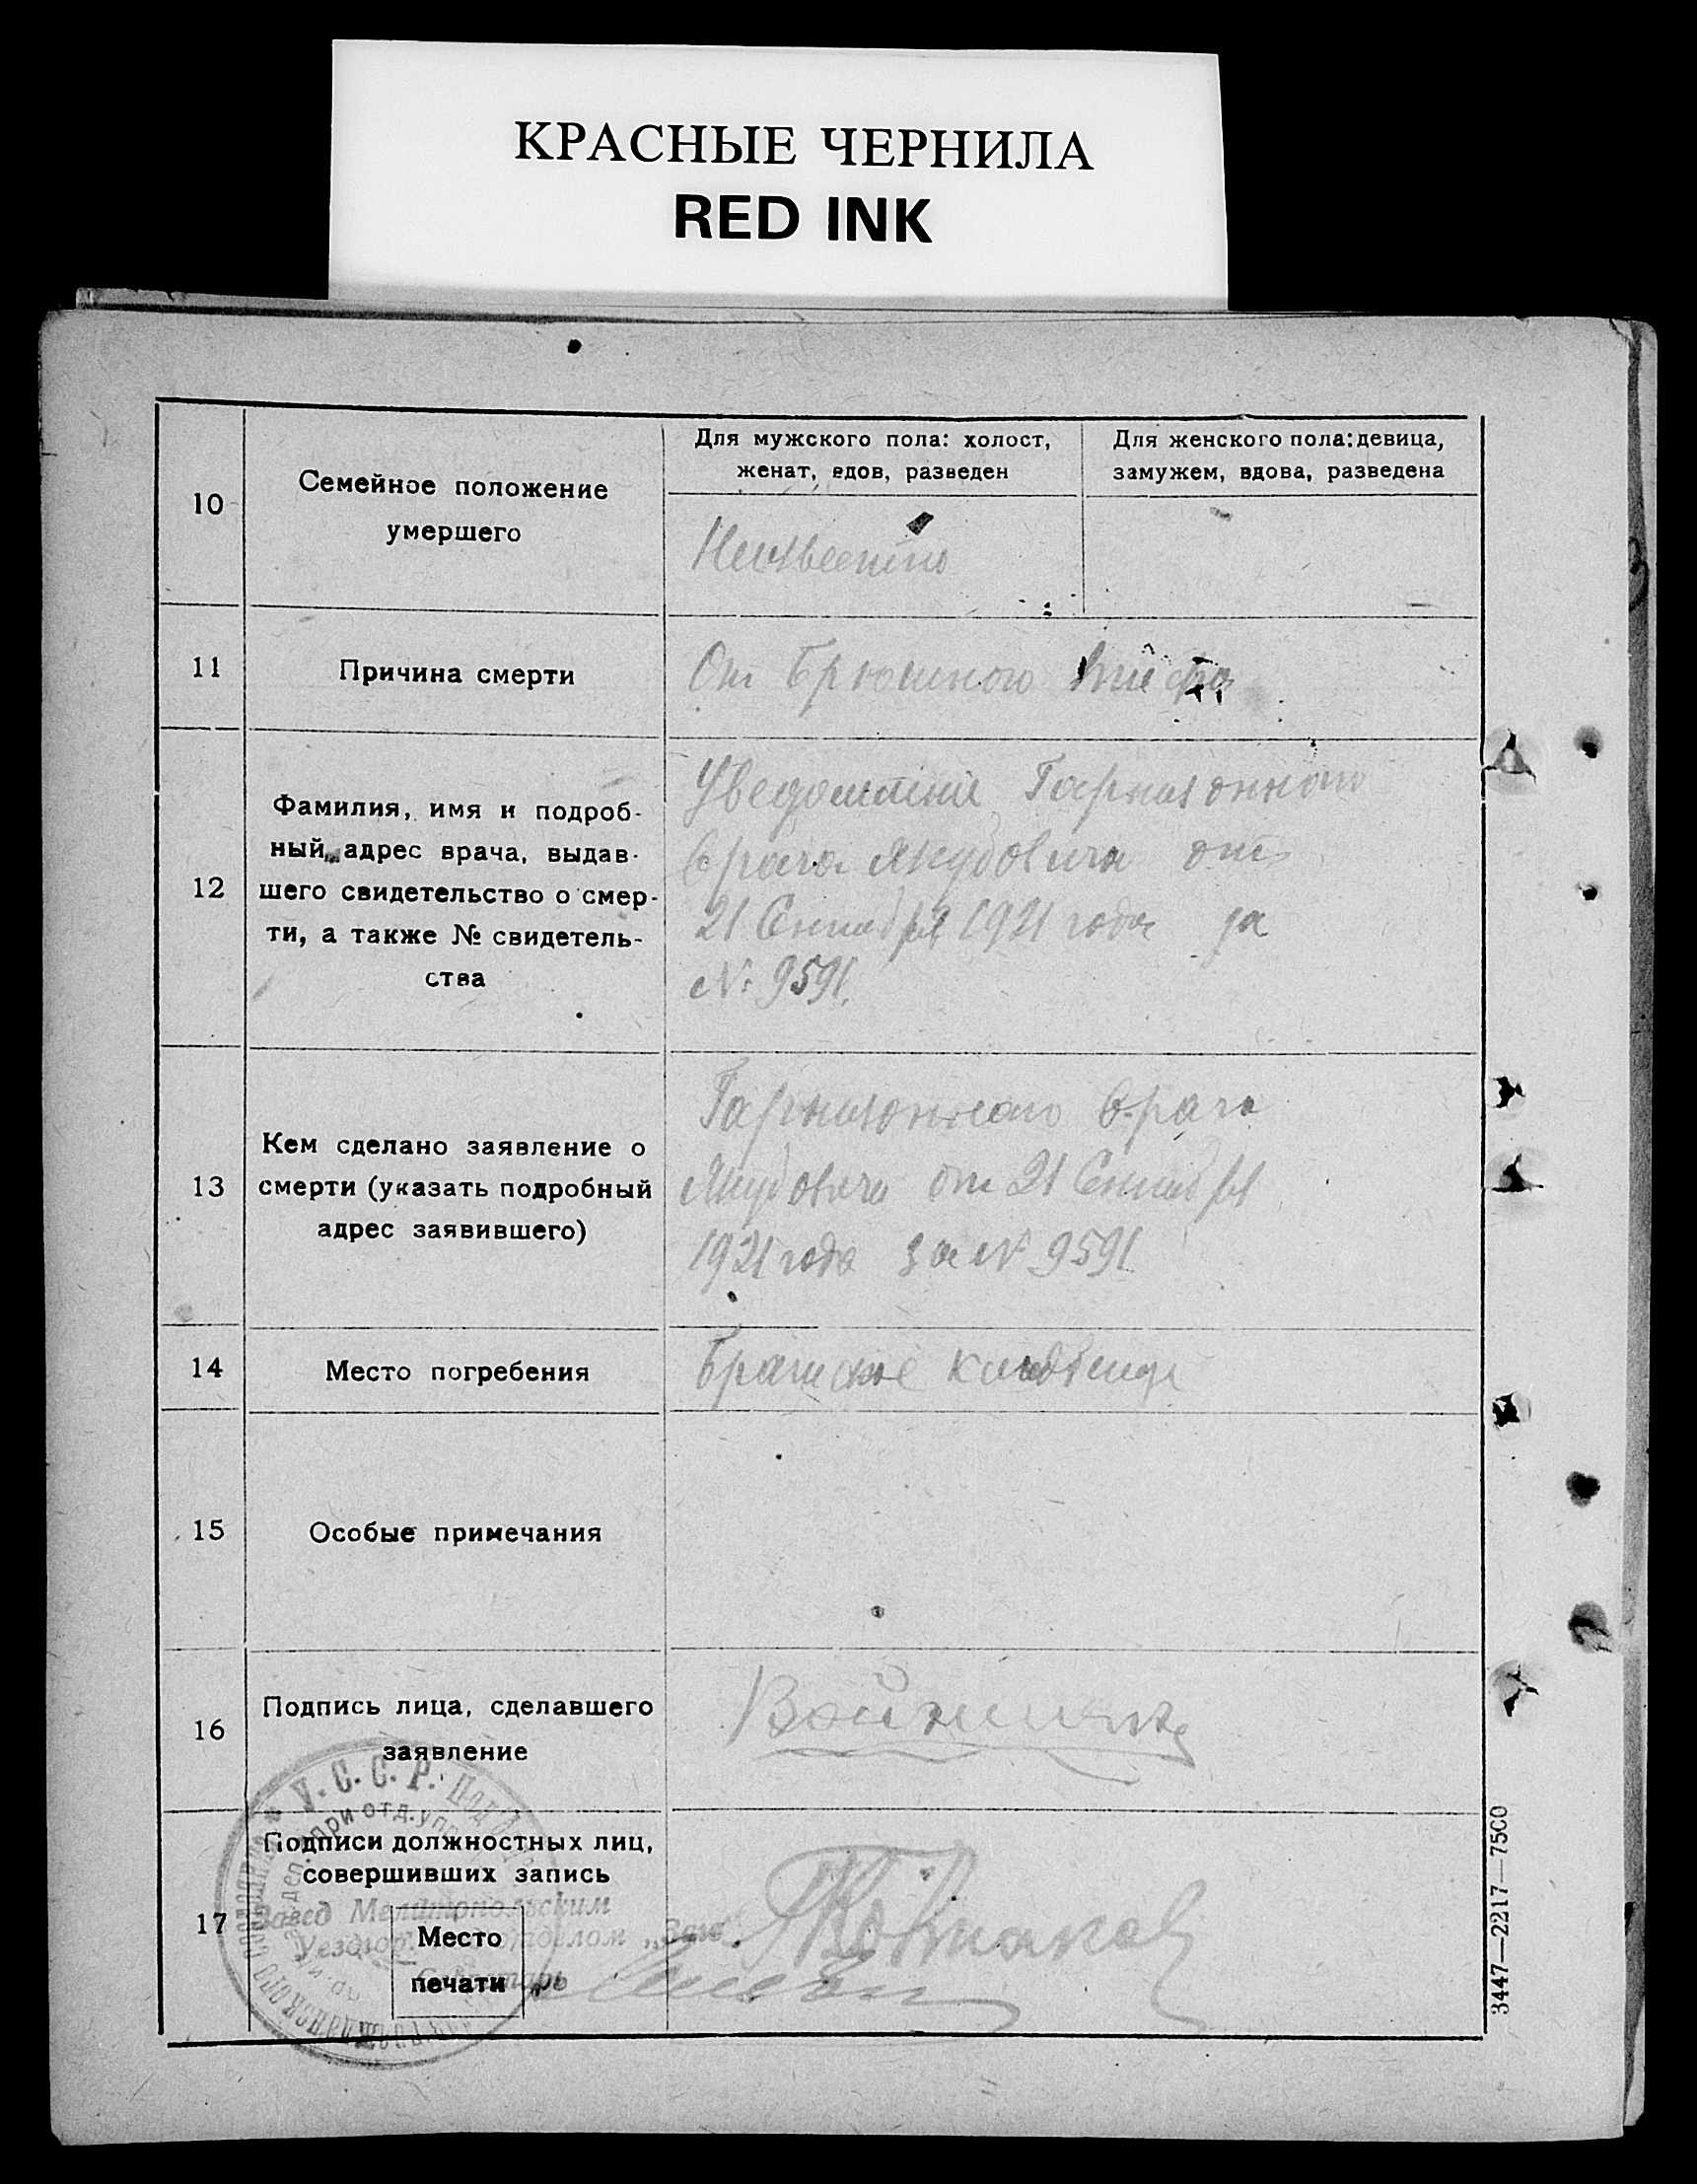 КРАСНЫЕ ЧЕРНИЛА
RED INK
10
Семейное положение
умершего
Для мужского пола: холост,
женат, вдов, разведен
Для женского пола: девица,
замужем, вдова, разведена
Неизвестно
11
Причина смерти
От Брюшного тифа
12
Фамилия, имя и подроб-
ный адрес врача, выдав-
шего свидетельство о смер-
ти, а также № свидетель-
ства
Уведомление Гарнизонного
врача Якубовича от
21 Сентября 1921 года за
№ 9591.
13
Кем сделано заявление о
смерти (указать подробный
адрес заявившего)
Гарнизонного врача
Якубовича от 21 Сентября
1921 года за № 9591
14
Место погребения
Братское кладбище
15
Особые примечания
16
Подпись лица, сделавшего
заявление
17
Подписи должностных лиц,
совершивших запись
Место
печати
У.С.С.Р.
при отд. упр
Завед Мелитопольским
Секретарь
3447—2217—7500